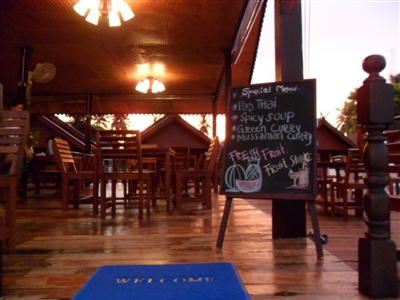 Special Menu
PAD THAI
SPICY SOUP
GREEN CURRY
MUSSAMAN CURRY
FRESH Fruit
Fruit Shake
WELCOME